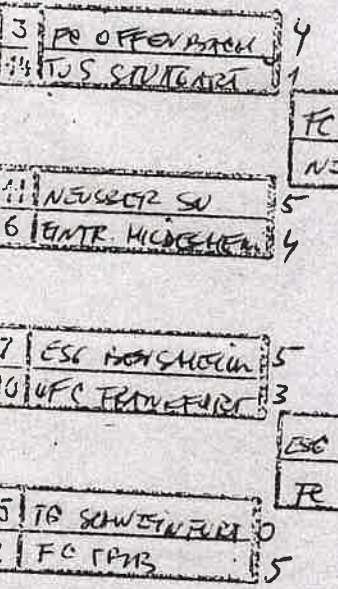 3 FC OFFENBACH 4
14 TUS STUTTGART 1
FC
NE
11 NEUSSER SV 5
6 EINTR. HILDESHEIM 4
7 ESG BENSHEIM 5
10 UFC FRANKFURT 3
ESG
FC
5 TG SCHWEINFURT 0
FC 5